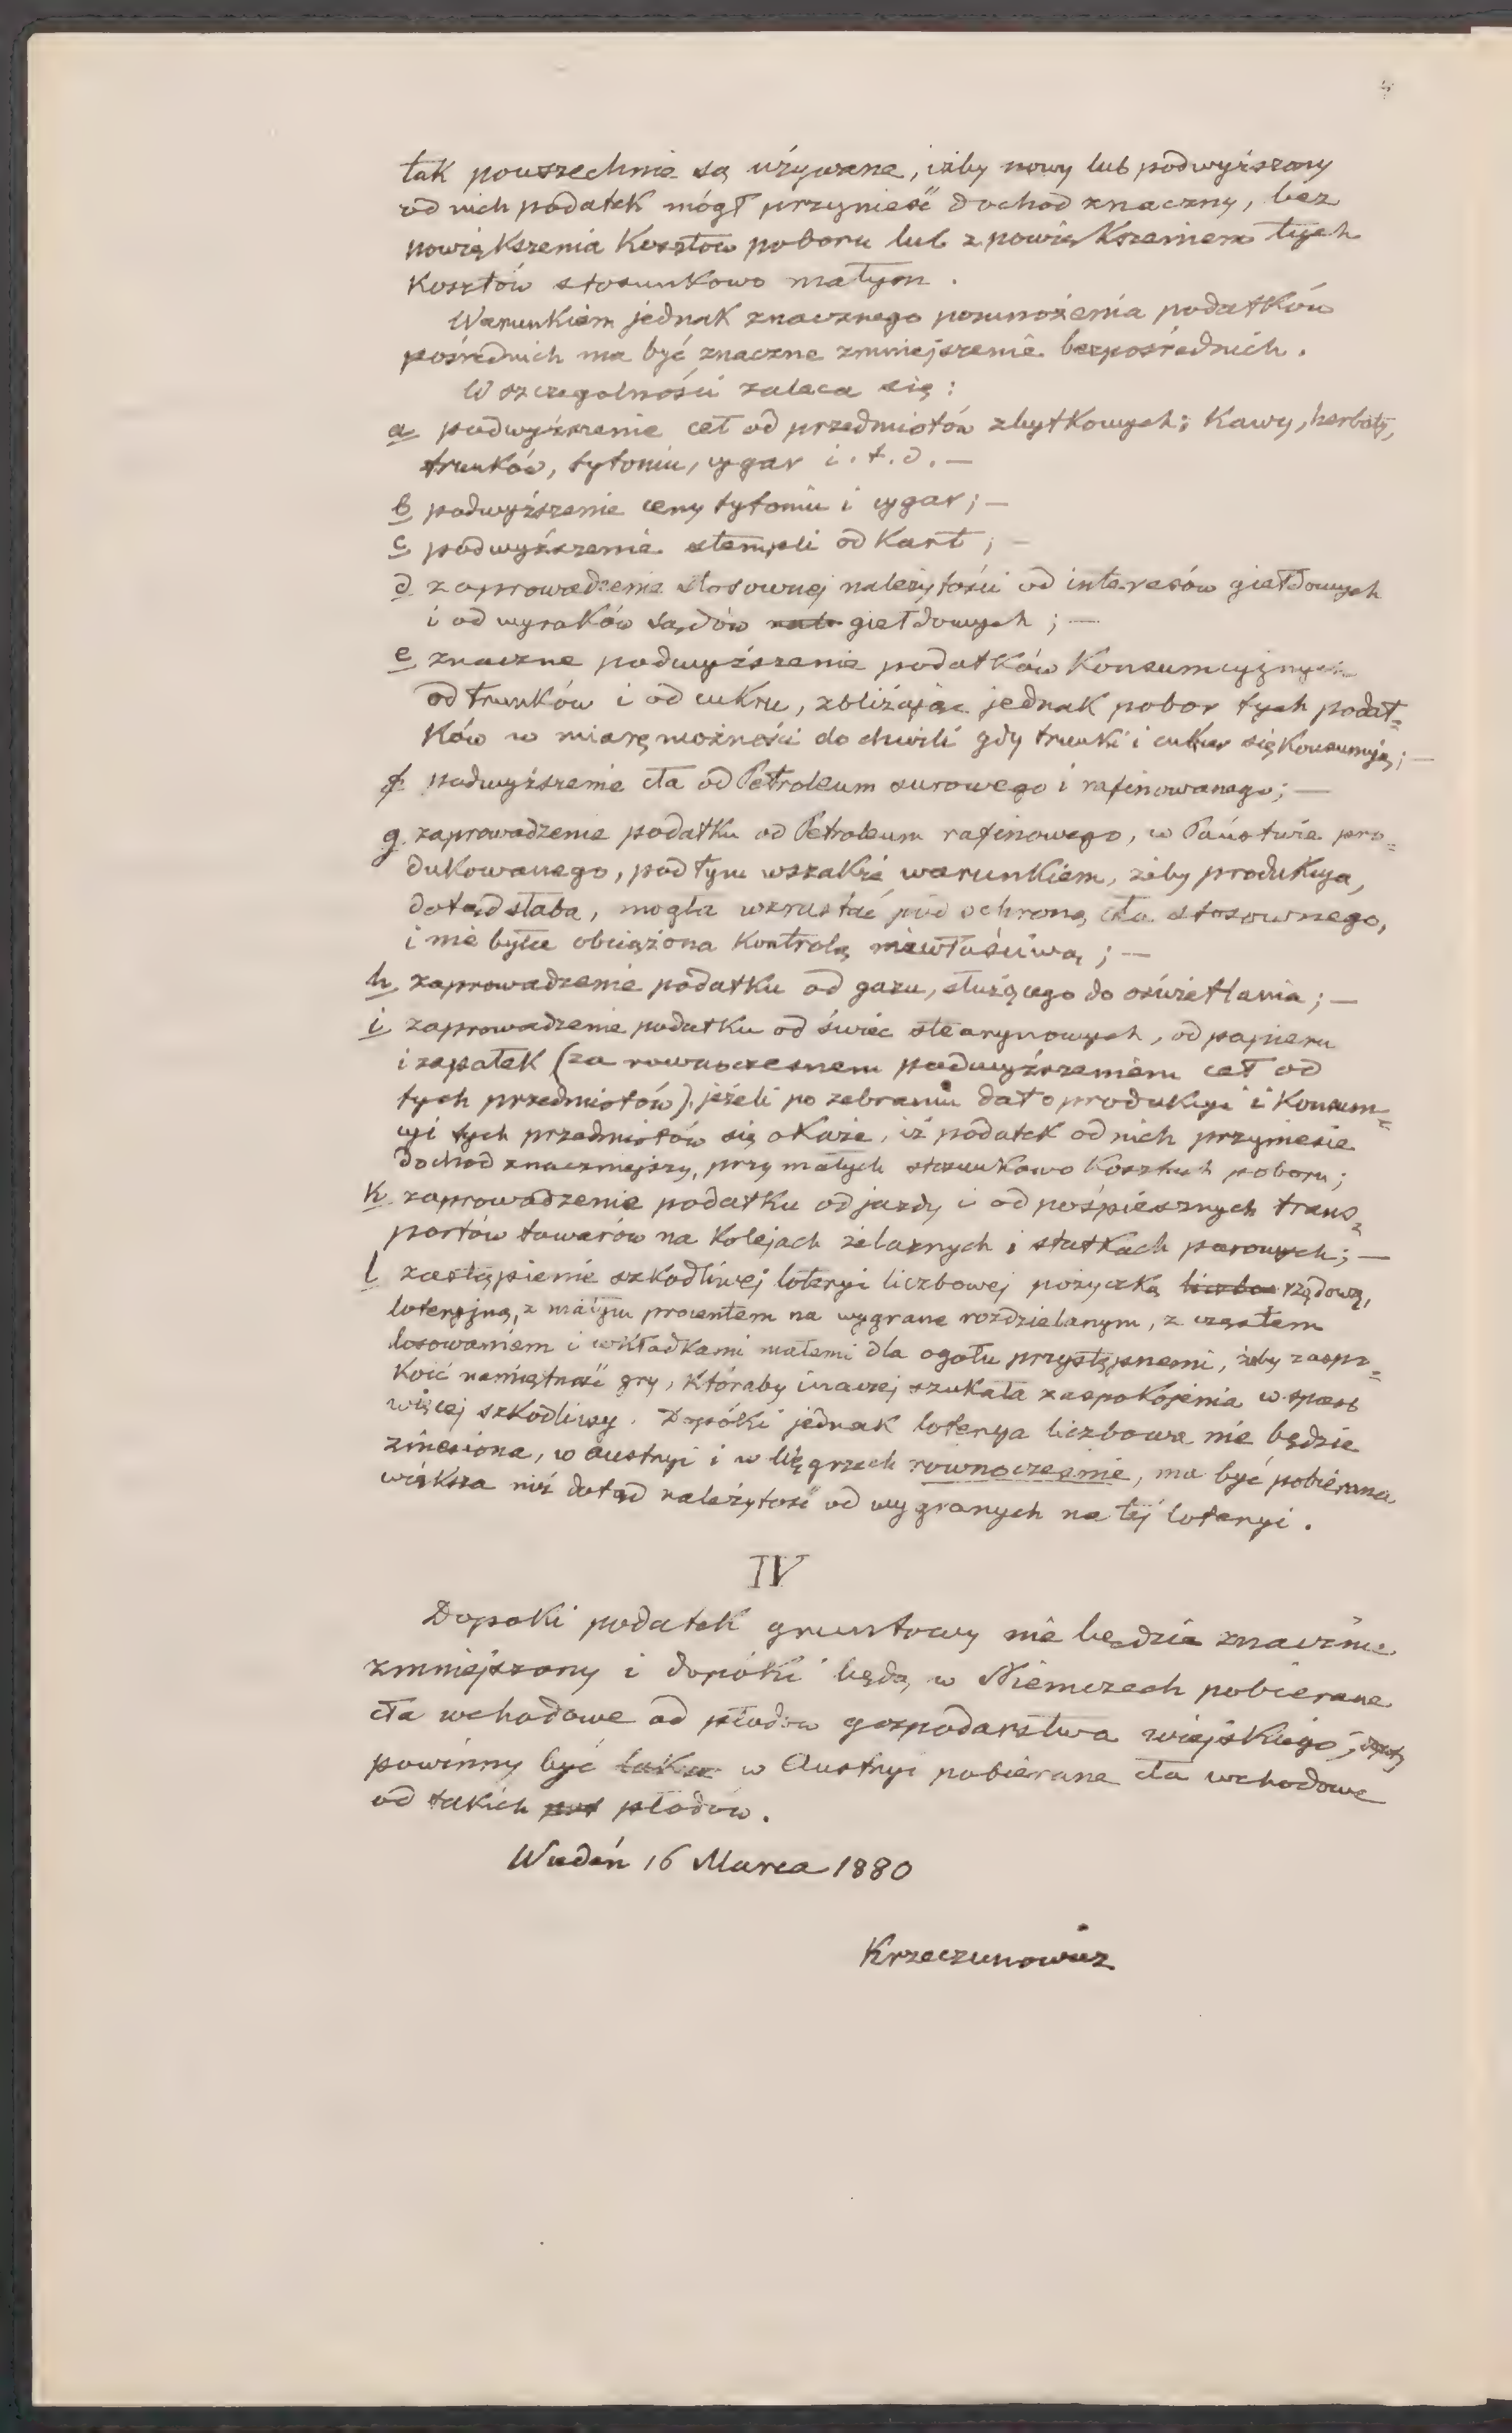 tak powszechnie są używane, iżby nowy lub podwyższony
od nich podatek mógł przynieść dochod znaczny, bez
powiększenia kosztów poboru lub z powiększeniem tych
kosztów stosunkowo małym.
Warunkiem jednak znacznego pomnożenia podatków
pośrednich ma być znaczne zmniejszenie bezpośrednich.
W szczegolności zaleca się:
a podwyższenie ceł od przedmiotów zbytkowych; Kawy, herbaty,
trunków, tytoniu, cygar i.t.d. —
b podwyższenie ceny tytoniu i cygar; —
c podwyższenie stempli od Kart; —
d zaprowadzenie stosownej należytości od interesów giełdowych
i od wyroków sądów giełdowych; —
e znaczne podwyższenie podatków Konsumcyjnych
od trunków i od cukru, zbliżając jednak pobor tych podat=
ków w miarę możności do chwili gdy trunki i cukier się Konsumują; —
f podwyższenie cła od Petroleum surowego i rafinowanego; —
g. zaprowadzenie podatku od Petroleum rafinowego, w Państwie pro=
dukowanego, pod tym wszakże warunkiem, żeby produkcya,
dotąd słaba, mogła wzrastać pod ochroną cła stosownego,
i nie była obciążona Kontrolą niewłaściwą; —
h zaprowadzenie podatku od gazu, służącego do oświetlania; —
i zaprowadzenie podatku od świec stearynowych, od papieru
i zapałek (za rownoczesnem podwyższeniem ceł od
tych przedmiotów), jeżeli po zebraniu dat o produkcyi i Konsum=
cyi tych przedmiotów się okaże, iż podatek od nich przyniesie
dochod znaczniejszy, przy małych stosunkowo Kosztach poboru;
K zaprowadzenie podatku od jazdy i od pośpiesznych trans=
portów towarów na Kolejach żelaznych i statkach parowych; —
l zastąpienie szkodliwej loteryi liczbowej pożyczką rządową,
loteryjną, z małym procentem na wygrane rozdzielanym, z częstem
losowaniem i wkładkami małemi dla ogołu przystępnemi, żeby zaspo=
koić namiętność gry, któraby inaczej szukała zaspokojenia w sposb
więcej szkodliwy. Dopóki jednak loterya liczbowa nie będzie
zniesiona, w Austryi i w Węgrzech rownocześnie, ma być pobierana
większa niż dotąd należytość od wygranych na tej loteryi.
IV
Dopoki podatek gruntowy nie będzie znacznie
zmniejszony i dopóki będą w Niemczech pobierane
cła wchodowe od płodow gospodarstwa wiejskiego,
powinny być w Austryi pobierane cła wchodowe
od takich płodow.
Wiedeń 16 Marca 1880
Krzeczunowicz